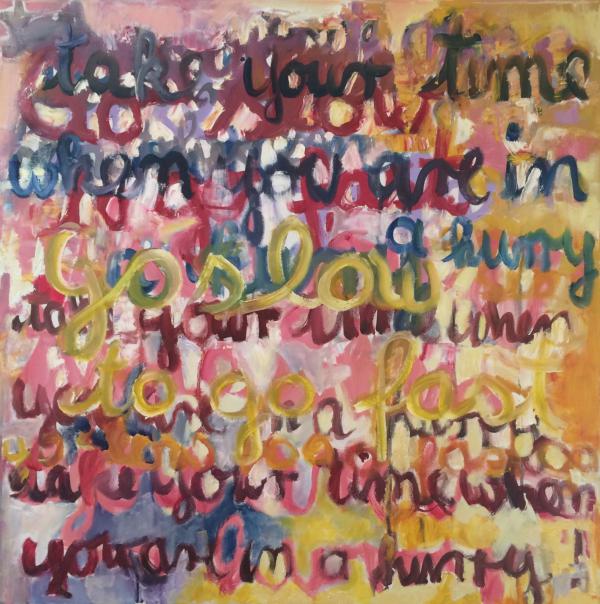 take your time
when you are in
a hurry
go slow
take your time when
you are in a hurry
to go fast
take your time when
you are in a hurry!